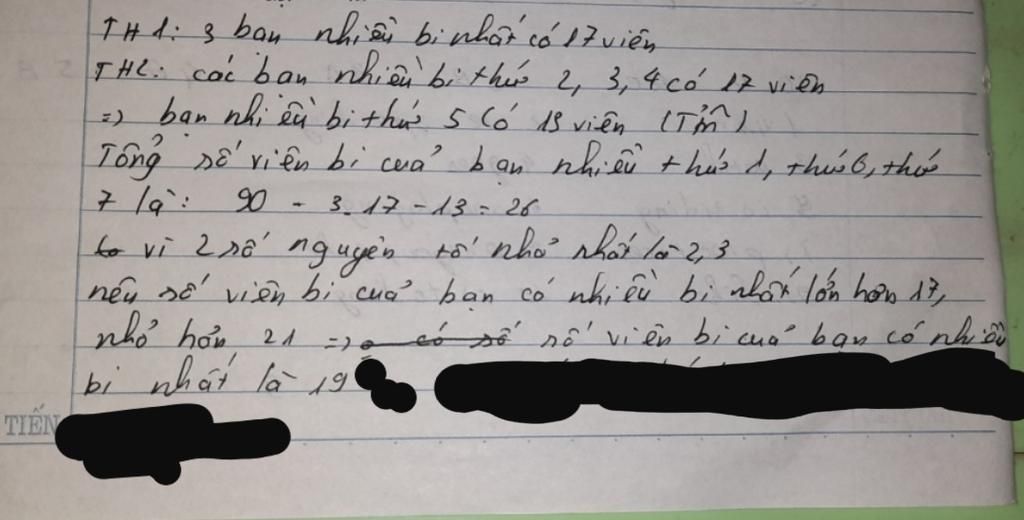 TH1: 3 bạn nhiều bi nhất có 17 viên
TH2: các bạn nhiều bi thứ 2, 3, 4 có 17 viên
=> bạn nhiều bi thứ 5 có 13 viên (Tm)
Tổng số viên bi của bạn nhiều thứ 1, thứ 6, thứ
7 là: 90 - 3.17 - 13 = 26
vì 2 số nguyên tố nhỏ nhất là 2, 3
nếu số viên bi của bạn có nhiều bi nhất lớn hơn 17,
nhỏ hơn 21 => số viên bi của bạn có nhiều
bi nhất là 19
TIẾN